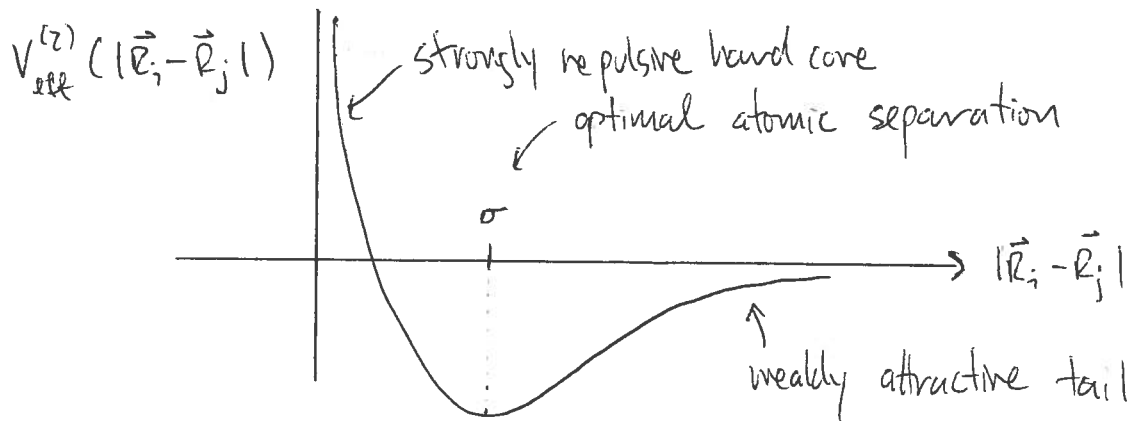 V_eff^(2) (|R⃗_i - R⃗_j|)
strongly repulsive hard core
optimal atomic separation
σ
|R⃗_i - R⃗_j|
weakly attractive tail